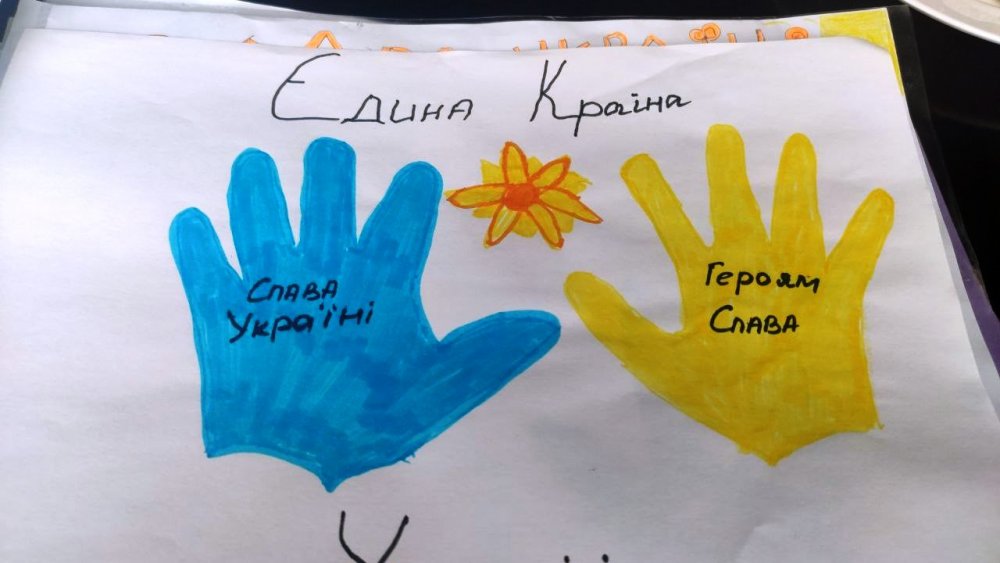 Єдина Країна
Слава
Україні
Героям
Слава